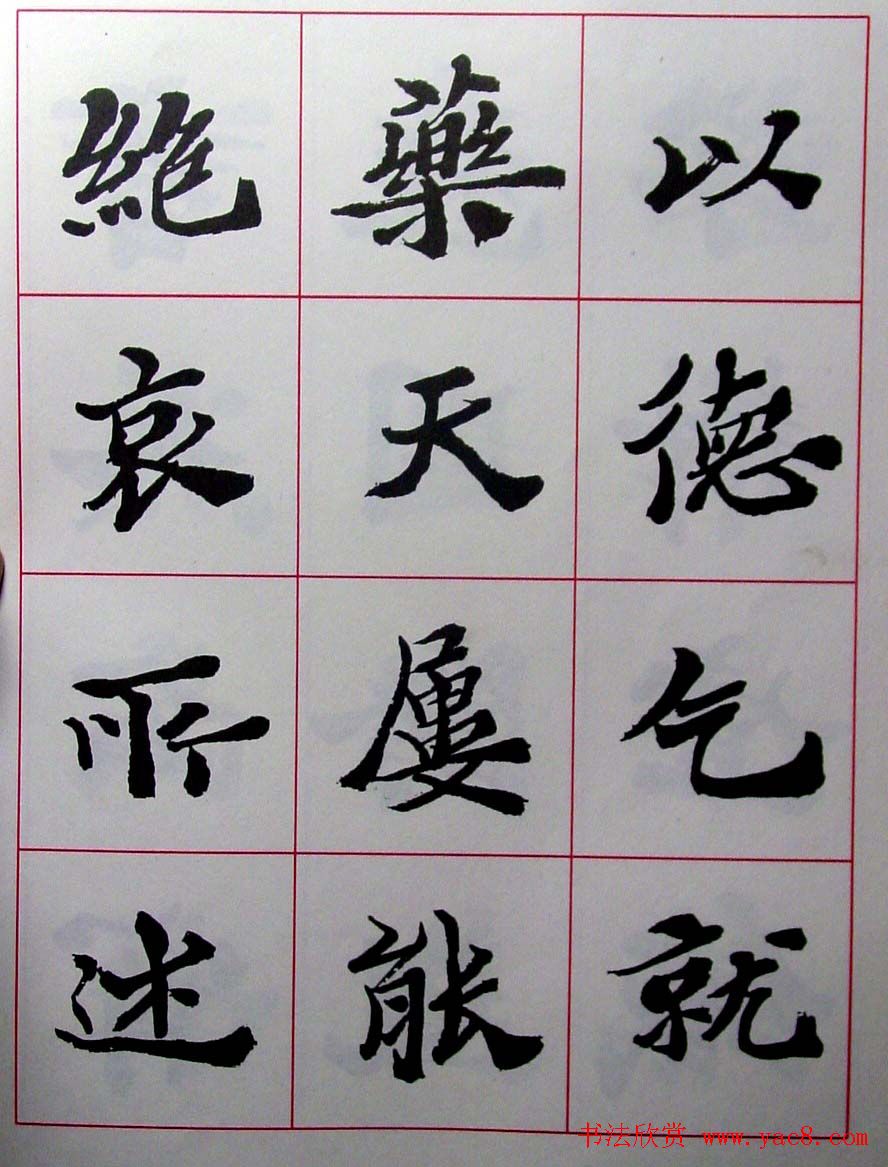 以德乞就
藥天屢能
絶哀所述
书法欣赏 www.yac8.com